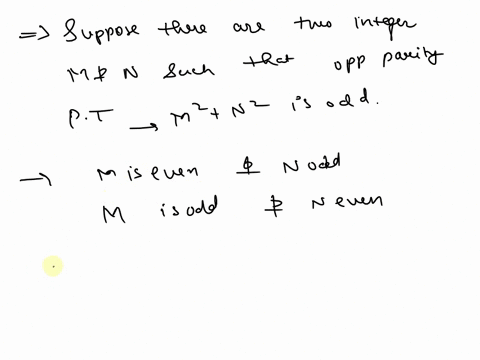 => Suppose there are two integer
M & N such that opp parity
P.T → M²+ N² is odd.
→ M is even & N odd
M is odd & N even